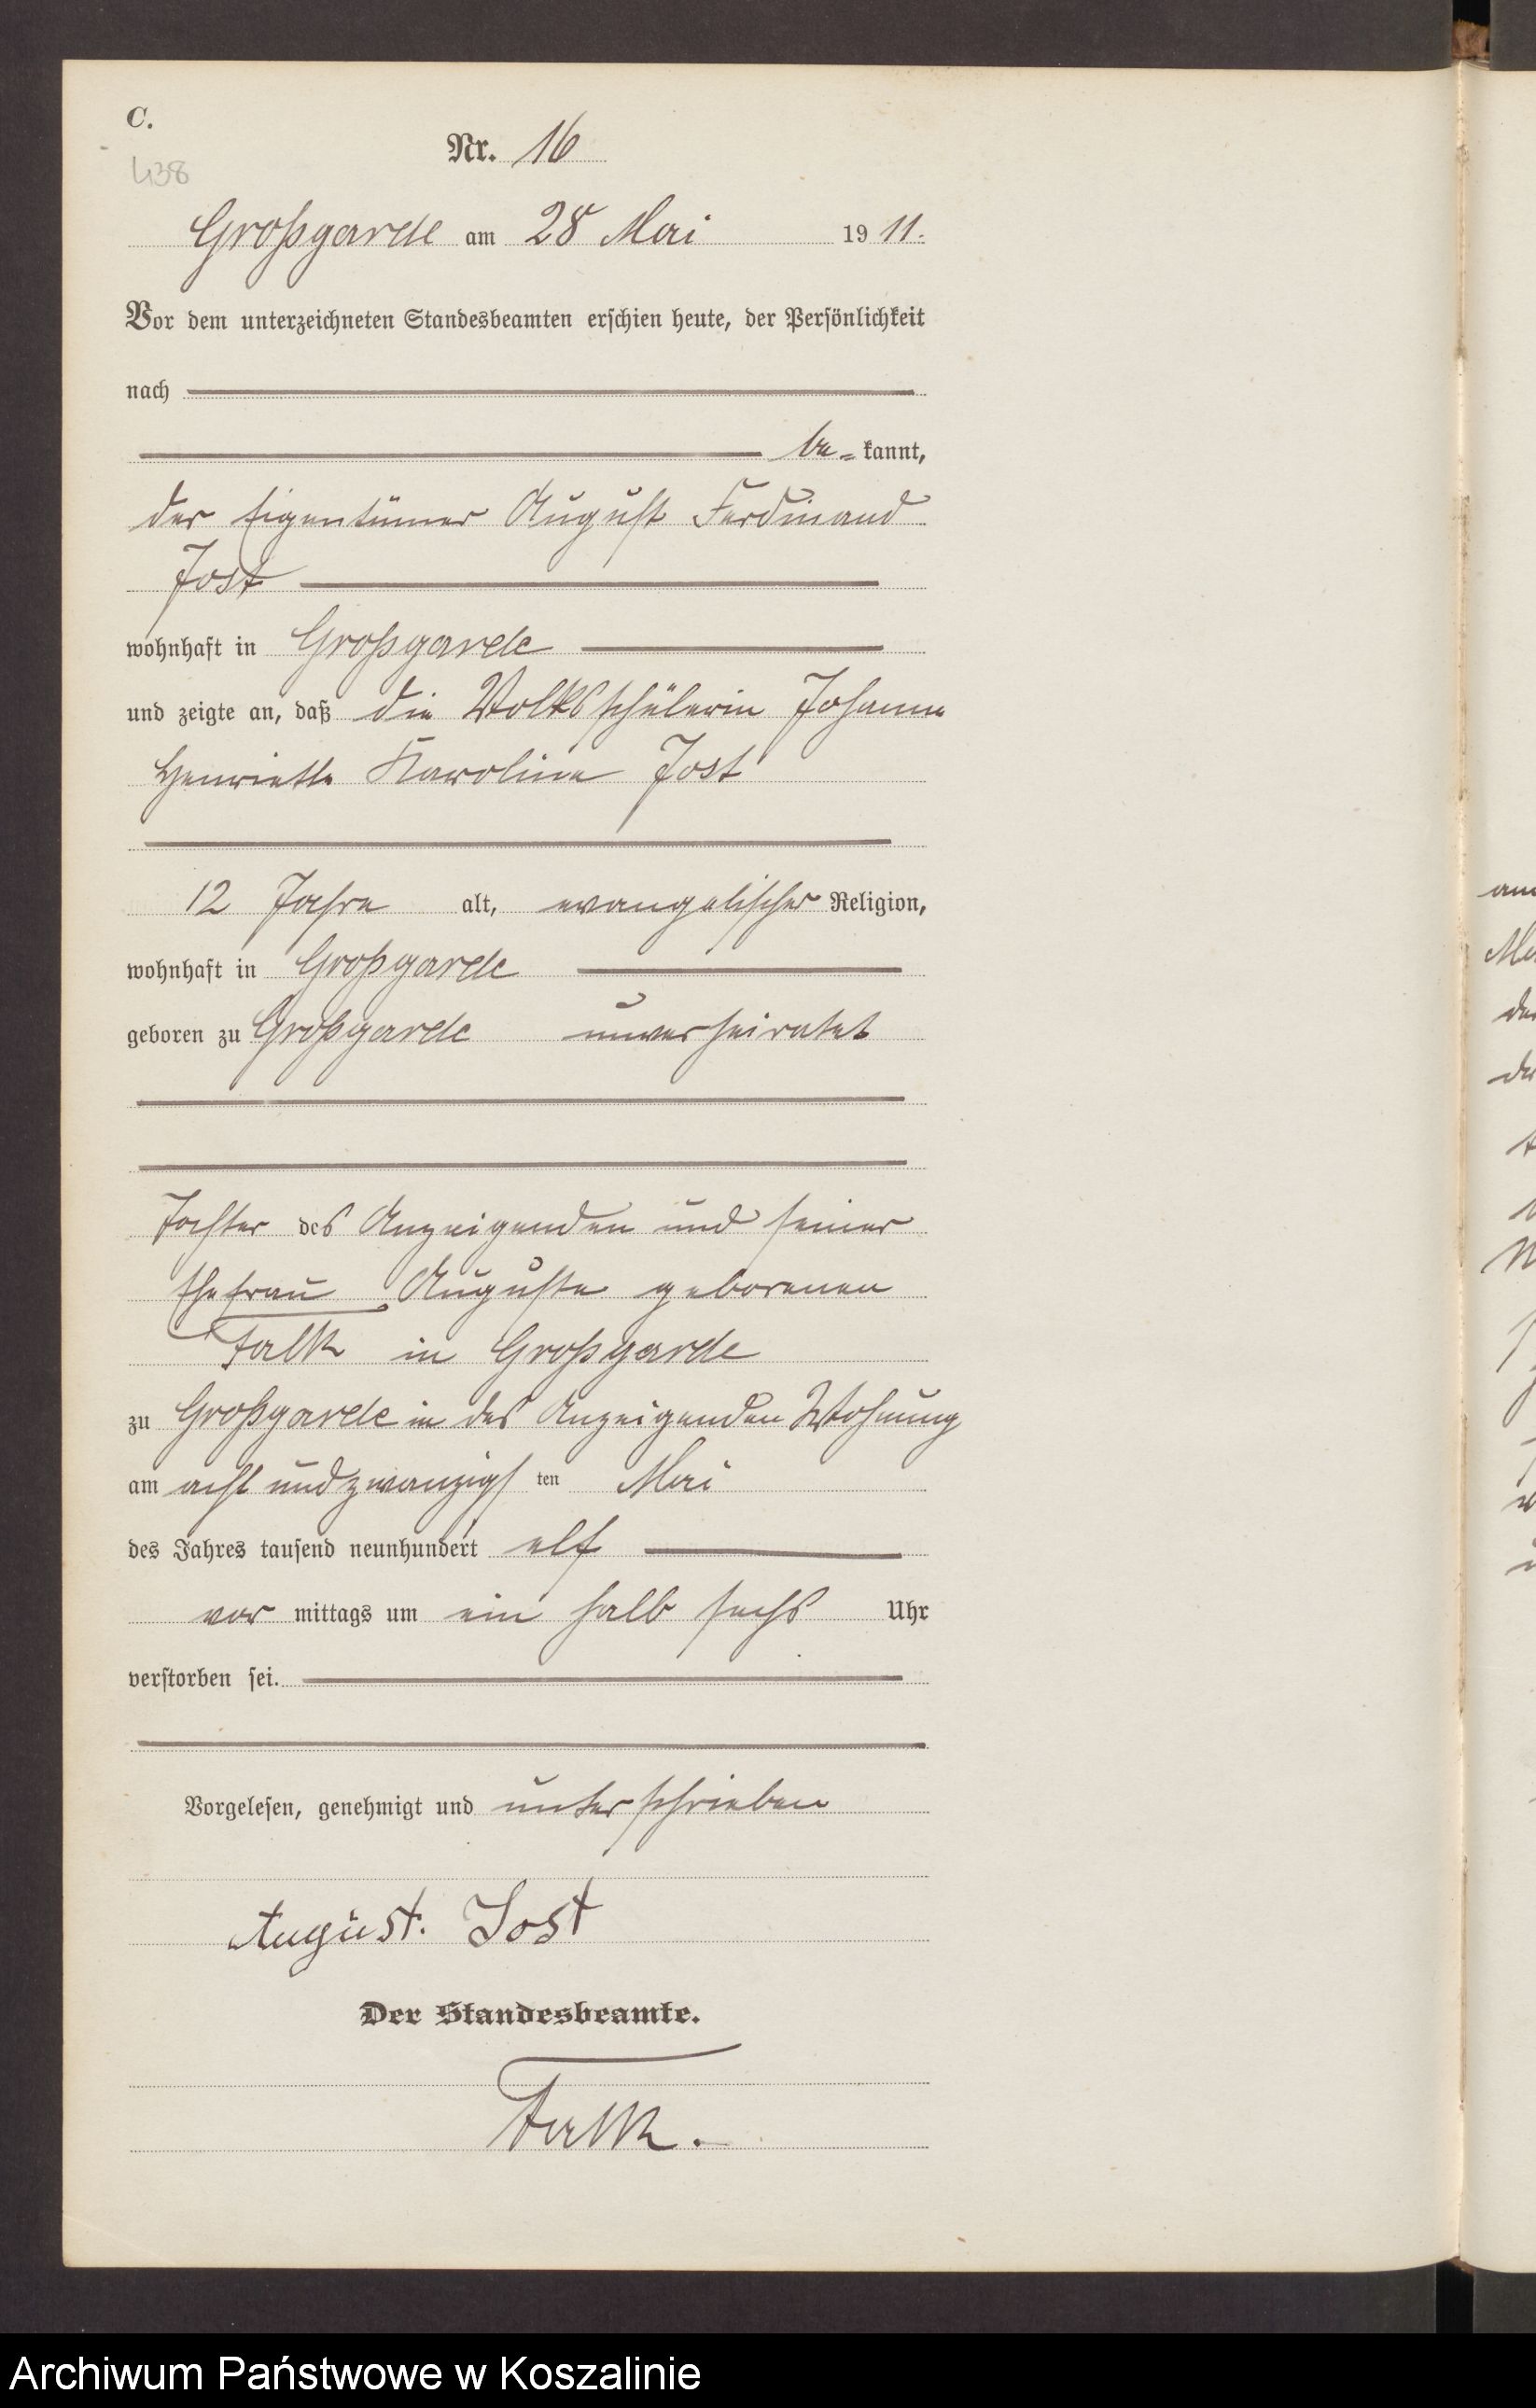 C.
438
Nr. 16
Großgarde am 28 Mai 1911.
Vor dem unterzeichneten Standesbeamten erschien heute, der Persönlichkeit
nach
be- kannt,
der Eigentümer August Ferdinand
Jost
wohnhaft in Großgarde
und zeigte an, daß die Volksschülerin Johanne
Henriette Karoline Jost
12 Jahre alt, evangelischer Religion,
wohnhaft in Großgarde
geboren zu Großgarde unverheiratet
Tochter des Anzeigenden und seiner
Ehefrau Auguste geborenen
Falk in Großgarde
zu Großgarde in des Anzeigenden Wohnung
am acht und zwanzigsten Mai
des Jahres tausend neunhundert elf
vor mittags um ein halb sechs Uhr
verstorben sei.
Vorgelesen, genehmigt und unterschrieben
August. Jost
Der Standesbeamte.
Falk.
Archiwum Państwowe w Koszalinie